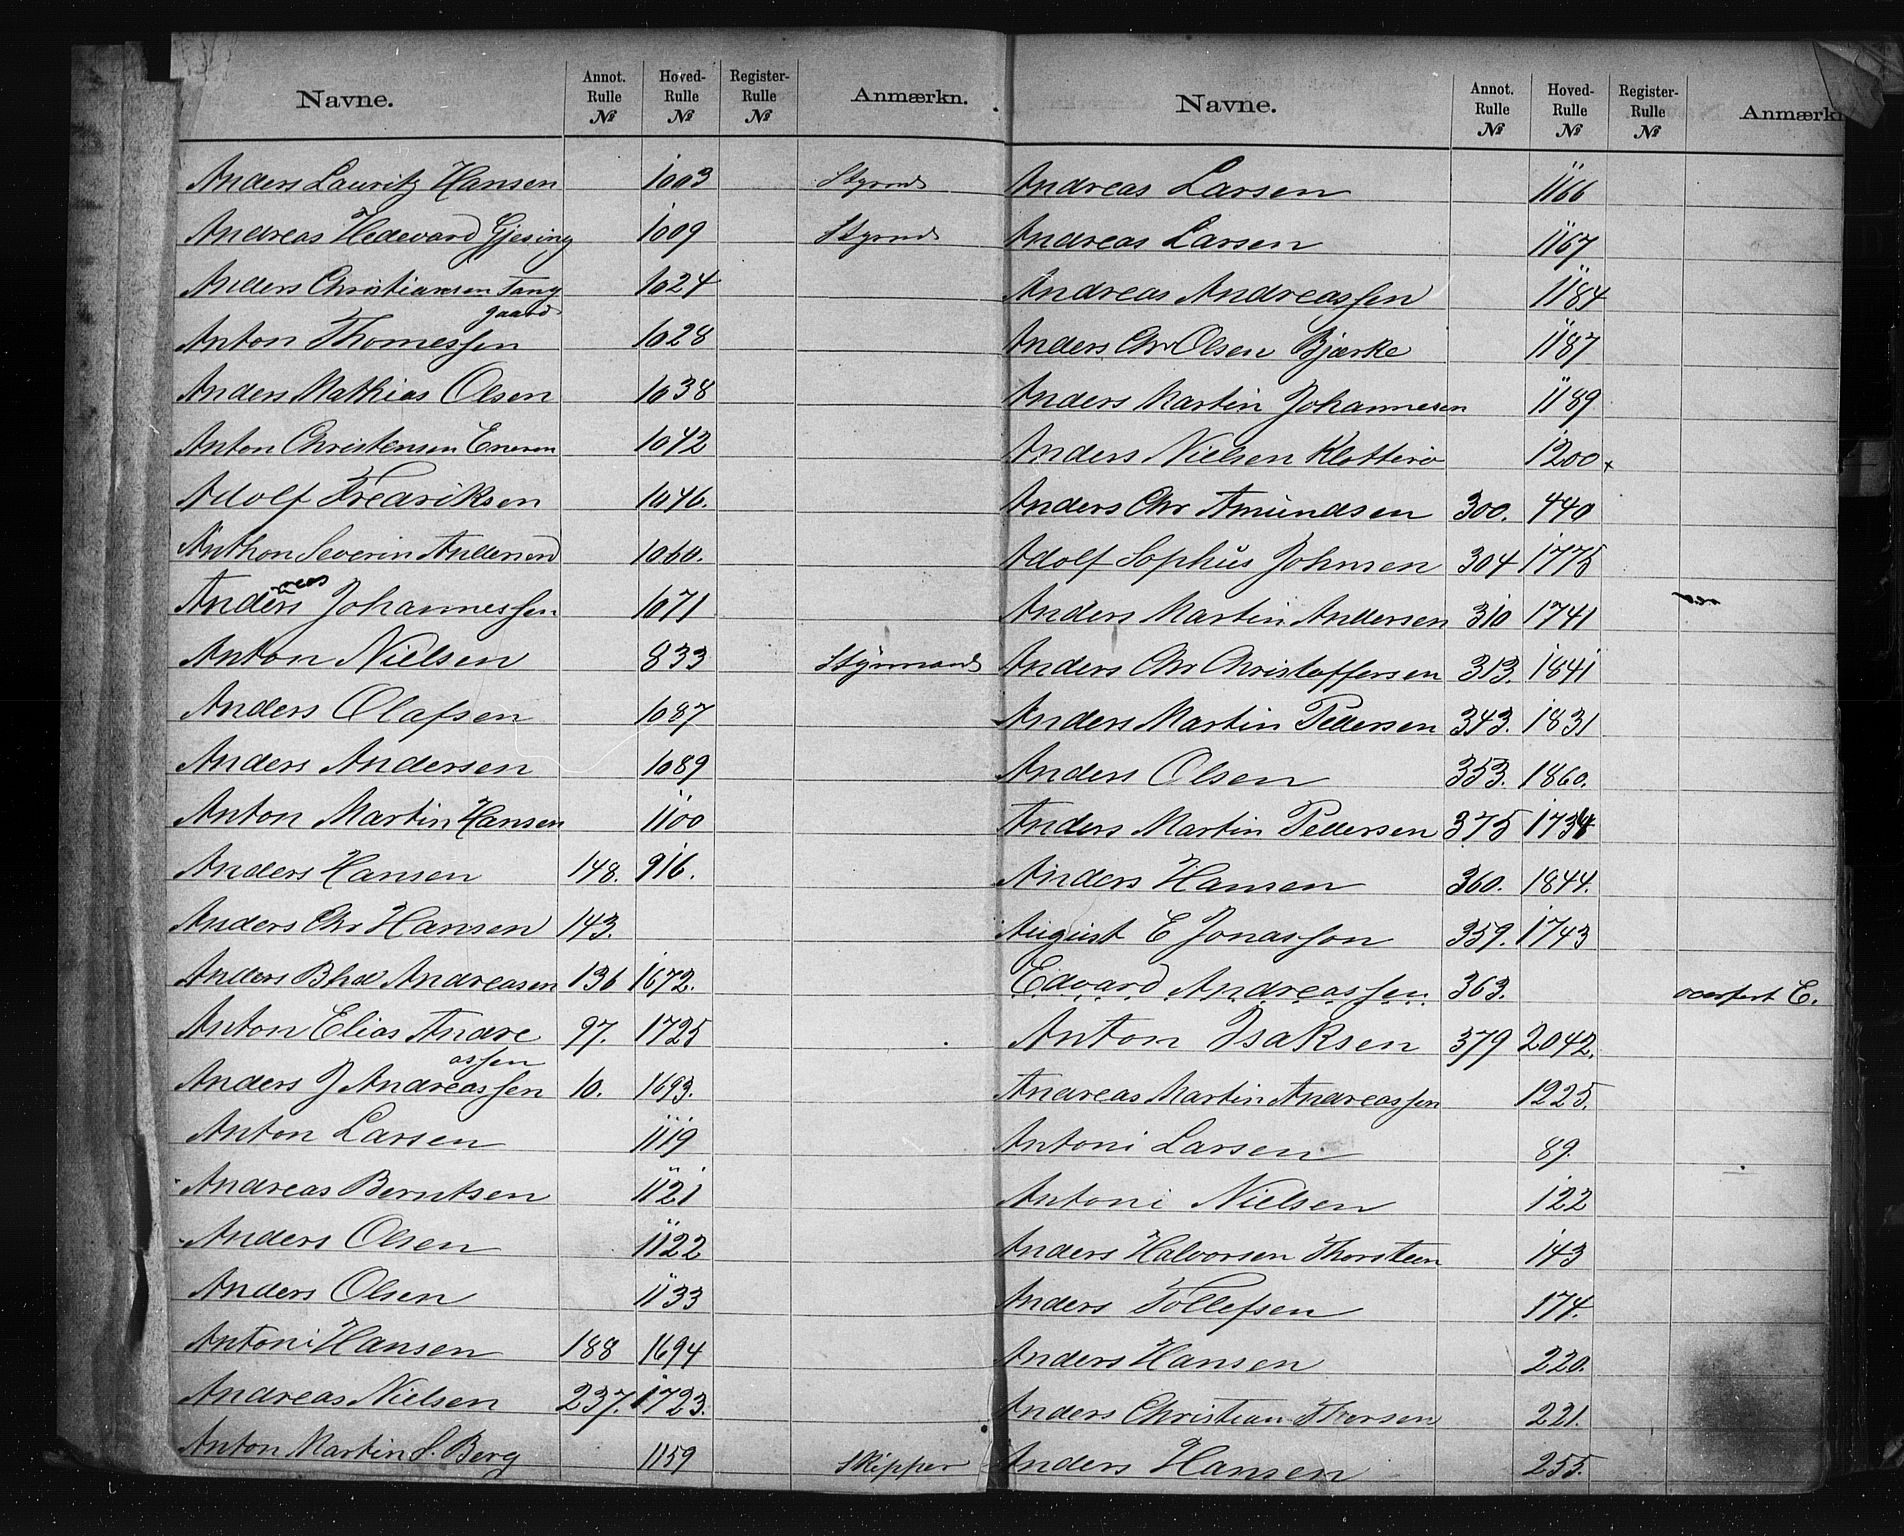 Navne. Annot. Rulle № Hoved-Rulle № Register-Rulle № Anmærkn.
Anders Lauritz Hansen 1003 Styrmd
Andreas Hedevard Gjesing 1009 Styrmd
Anders Christiansen Tang 1024
gaard
Anton Thomessen 1028
Anders Mathias Olsen 1038
Anton Christensen 1042
Adolf Fredriksen 1046.
Anthon Severin Andersen 1060.
reas
Anders Johannessen 1071
Anton Nielsen 833 Styrmand
Anders Olafsen 1087
Anders Andersen 1089
Anton Martin Hansen 1100
Anders Hansen 148. 916.
Anders Chr Hansen 143.
Anders Bhd Andreasen 136 1672.
Anton Elias Andre 97. 1725
assen
Anders J Andreassen 10. 1693.
Anton Larsen 1119
Andreas Berntsen 1121
Anders Olsen 1122
Anders Olsen 1133
Antoni Hansen 188 1694
Andreas Nielsen 237. 1723.
Anton Martin S. Berg 1159 Skipper
Navne. Annot. Rulle № Hoved-Rulle № Register-Rulle № Anmærk
Andreas Larsen 1166
Andreas Larsen 1167
Andreas Andreassen 1184
Anders Chr Olsen Bjærke 1187
Anders Martin Johannesen 1189
Anders Nielsen Klotterø 1200 x
Anders Chr Amundsen 300. 440
Adolf Sophus Johnsen 304 1775
Anders Martin Andersen 310 1741
Anders Chr Christoffersen 313. 1841
Anders Martin Pedersen 343. 1831
Anders Olsen 353. 1860.
Anders Martin Pedersen 375 1734
Anders Hansen 360. 1844.
August E Jonasson 359. 1743
Edvard Andreassen 363. overført E.
Anton Isaksen 379 2042.
Andreas Martin Andreassen 1225.
Antoni Larsen 89.
Antoni Nielsen 122
Anders Halvorsen Thorsteen 143
Anders Tollefsen 174.
Anders Hansen 220.
Anders Christian Iversen 221.
Anders Hansen 255.